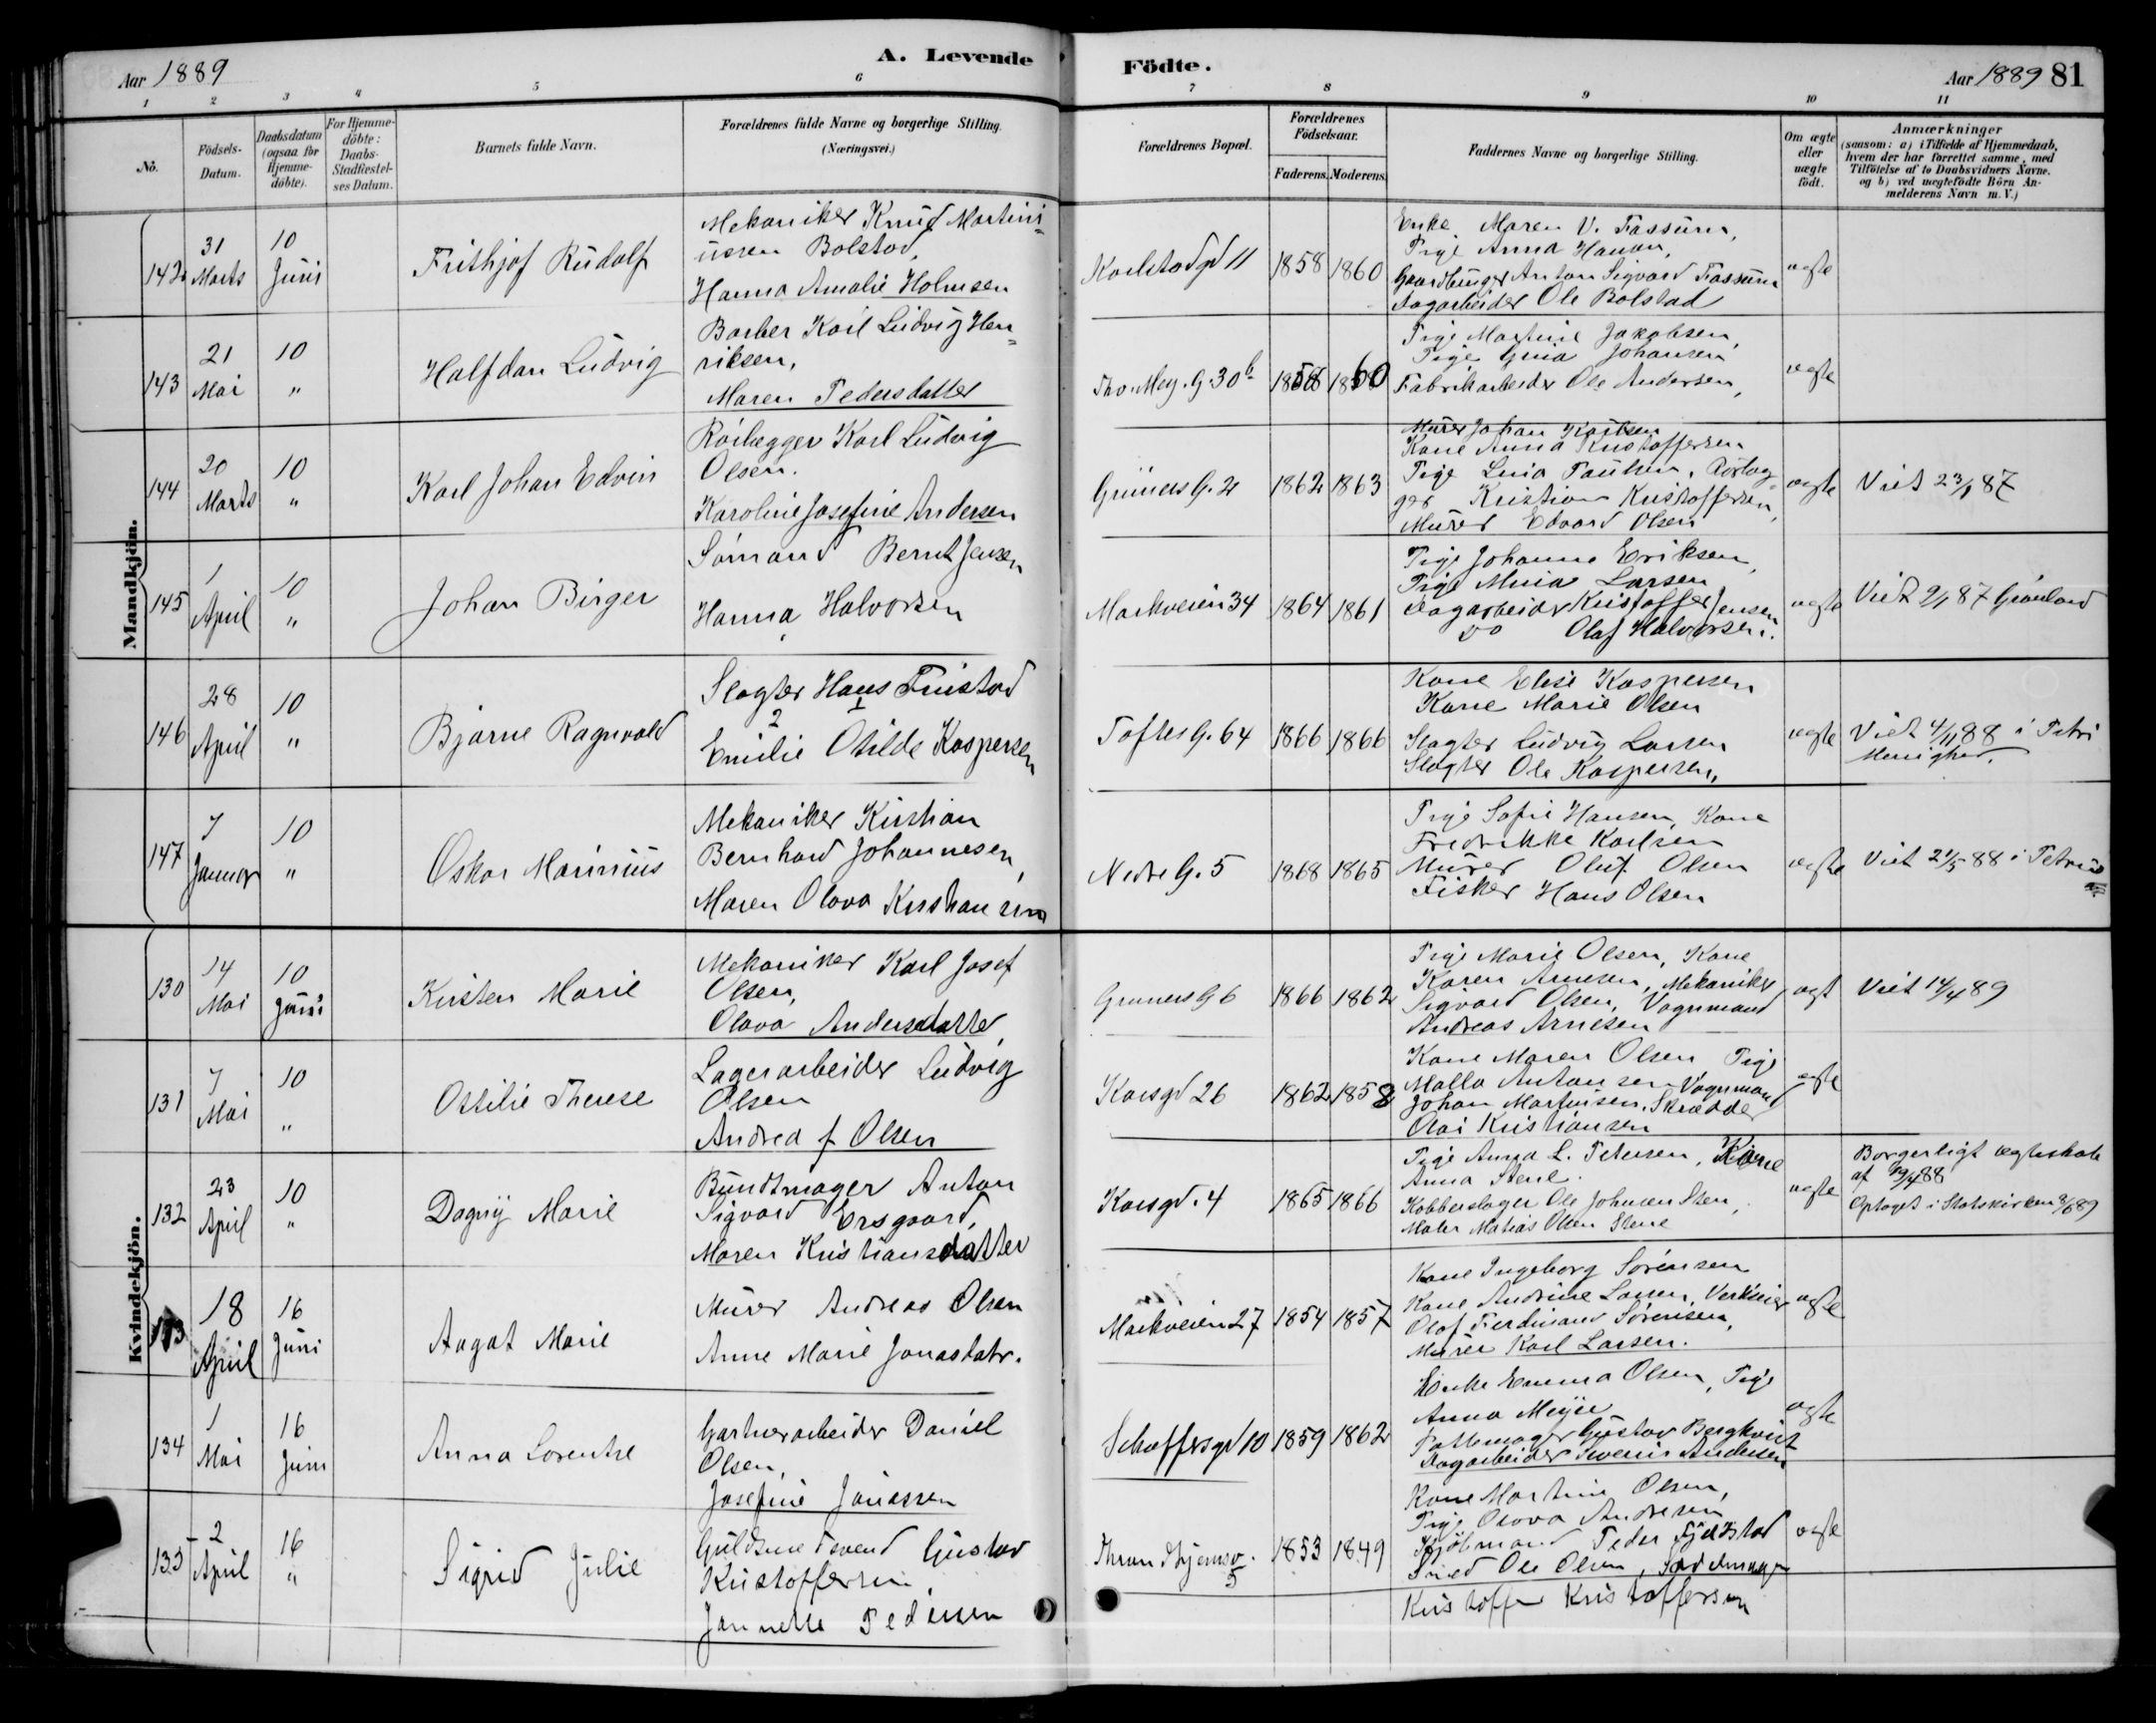 Aar 1889
A. Levende
Födte.
Aar 1889 81
1 2 3 4 5 6 7 8 9 10 11
No.
Födsels-
Datum.
Daabsdatum
(ogsaa for
Hjemme-
döbte).
For Hjemme-
döbte:
Daabs-
Stadfæstel-
ses Datum.
Barnets fulde Navn.
Forældrenes fulde Navne og borgerlige Stilling.
(Næringsvei.)
Forældrenes Bopæl.
Forældrenes
Födselsaar.
Faderens.
Moderens.
Faddernes Navne og borgerlige Stilling.
Om ægte
eller
uægte
födt.
Anmærkninger
(saasom: a) i Tilfælde af Hjemmedaab,
hvem der har forrettet samme, med
Tilföielse af to Daabsvidners Navne.
og b) ved uægtefödte Börn An-
melderens Navn m. V.)
Mandkjön.
142
31
Marts
10
Juni
Frithjof Rudolf
Mekaniker Knud Martini-
usen Bolstad,
Hanna Amalie Holmsen
Karlstadgd 11
1858
1860
Enke Maren V. Fassum,
Pige Anna Hanan,
Gaardbruger Anton Sigvard Fassum
Dagarbeider Ole Bolstad
ægte
143
21
Mai
10
"
Halfdan Ludvig
Barber Karl Ludvig Hen-
riksen,
Maren Pedersdatter
Tho. Mey. G. 30 b
1858
1860
Pige Martine Jakobsen,
Pige Gina Johansen
Fabrikarbeider Ole Andersen,
Murer Johan Karlsen
ægte
144
20
Marts
10
"
Karl Johan Edvin
Rörlægger Karl Ludvig
Olsen.
Karoline Josefine Andersen
Grüners G. 21
1862
1863
Kone Anna Kristoffersen
Pige Lina Paulsen, Rörlæg-
ger Kristian Kristoffersen,
Murer Edvard Olsen
ægte
Viet 23/1 87
145
1
April
10
"
Johan Birger
Sömand Bernt Jensen
Hanna Halvorsen
Markveien 34
1864
1861
Pige Johanne Eriksen,
Pige Mina Larsen
Dagarbeider Kristoffer Jensen
Do Olaf Halvorsen.
ægte
Viet 2/1 87 Grönland
146
28
April
10
"
Bjarne Ragnvald
Slagter Hans Finstad
2 1
Emilie Otilde Kaspersen
Toftes G. 64
1866
1866
Kone Elise Kaspersen
Kone Marie Olsen
Slagter Ludvig Larsen
Slagter Ole Kaspersen,
ægte
Viet 4/11 88 i Petri
Menighed.
147
7
Januar
10
"
Oskar Marinius
Mekaniker Kristian
Bernhard Johannesen,
Maren Olava Kristiansen
Nedre G. 5
1868
1865
Pige Sofie Hansen, Kone
Fredrikke Karlsen
Murer Oluf Olsen
Fisker Hans Olsen
ægte
Viet 21/5 88 i Petrus
Kvindekjön.
130
14
Mai
10
Juni
Kirsten Marie
Mekaniker Karl Josef
Olsen,
Olava Andersdatter
Gruners G 6
1866
1862
Pige Marie Olsen, Kone
Karen Arnesen, Mekaniker
Sigvard Olsen, Vognmand
Andreas Arnesen
ægt
Viet 14/4 89
131
7
Mai
10
"
Ottilie Therese
Lagerarbeider Ludvig
Olsen
Andrea f. Olsen
Korsgd 26
1862
1858
Kone Maren Olsen Pige
Malla Antonsen Vognmand
Johan Martinsen, Skrædder
Olai Kristiansen
ægte
132
23
April
10
"
Dagny Marie
Bundtmager Anton
Sigvard Ersgaard,
Maren Kristiansdatter
Korsgd. 4
1865
1866
Pige Anna L. Petersen, Kone
Anna Stene.
Kobberslager Ole Johnsen Sten,
Maler Matias Olsen Stene
ægte
Borgerligt ægteskab
af 19/4 88
Optaget i Statskirken 8/6 89
133
18
April
16
Juni
Aagot Marie
Murer Andreas Olsen
Anne Marie Jonasdatr.
Markveien 27
1854
1857
Kone Ingeborg Sörensen
Kone Andrine Larsen, Verkseier
Olaf Ferdinand Sörensen,
Murer Karl Larsen.
ægte
134
1
Mai
16
Juni
Anna Lorentse
Gartnerarbeider Daniel
Olsen,
Josefine Jonassen
Schaffersgd 10
1859
1862
Enke Emma Olsen, Pige
Anna Meyer
Pottemager Gustav Bergkvist
Dagarbeider Andersen
ægte
135
2
April
16
"
Sigrid Julie
Guldsmedsvend Gustav
Kristoffersen,
Jannette Pedersen
Throndhjemsv.
5
1853
1849
Kone Martine Olsen,
Pige Olava Andresen
Kjöbmand Peder Fjeldstad
Smed Ole Olsen, Sadelmager
Kristoffer Kristoffersen
ægte